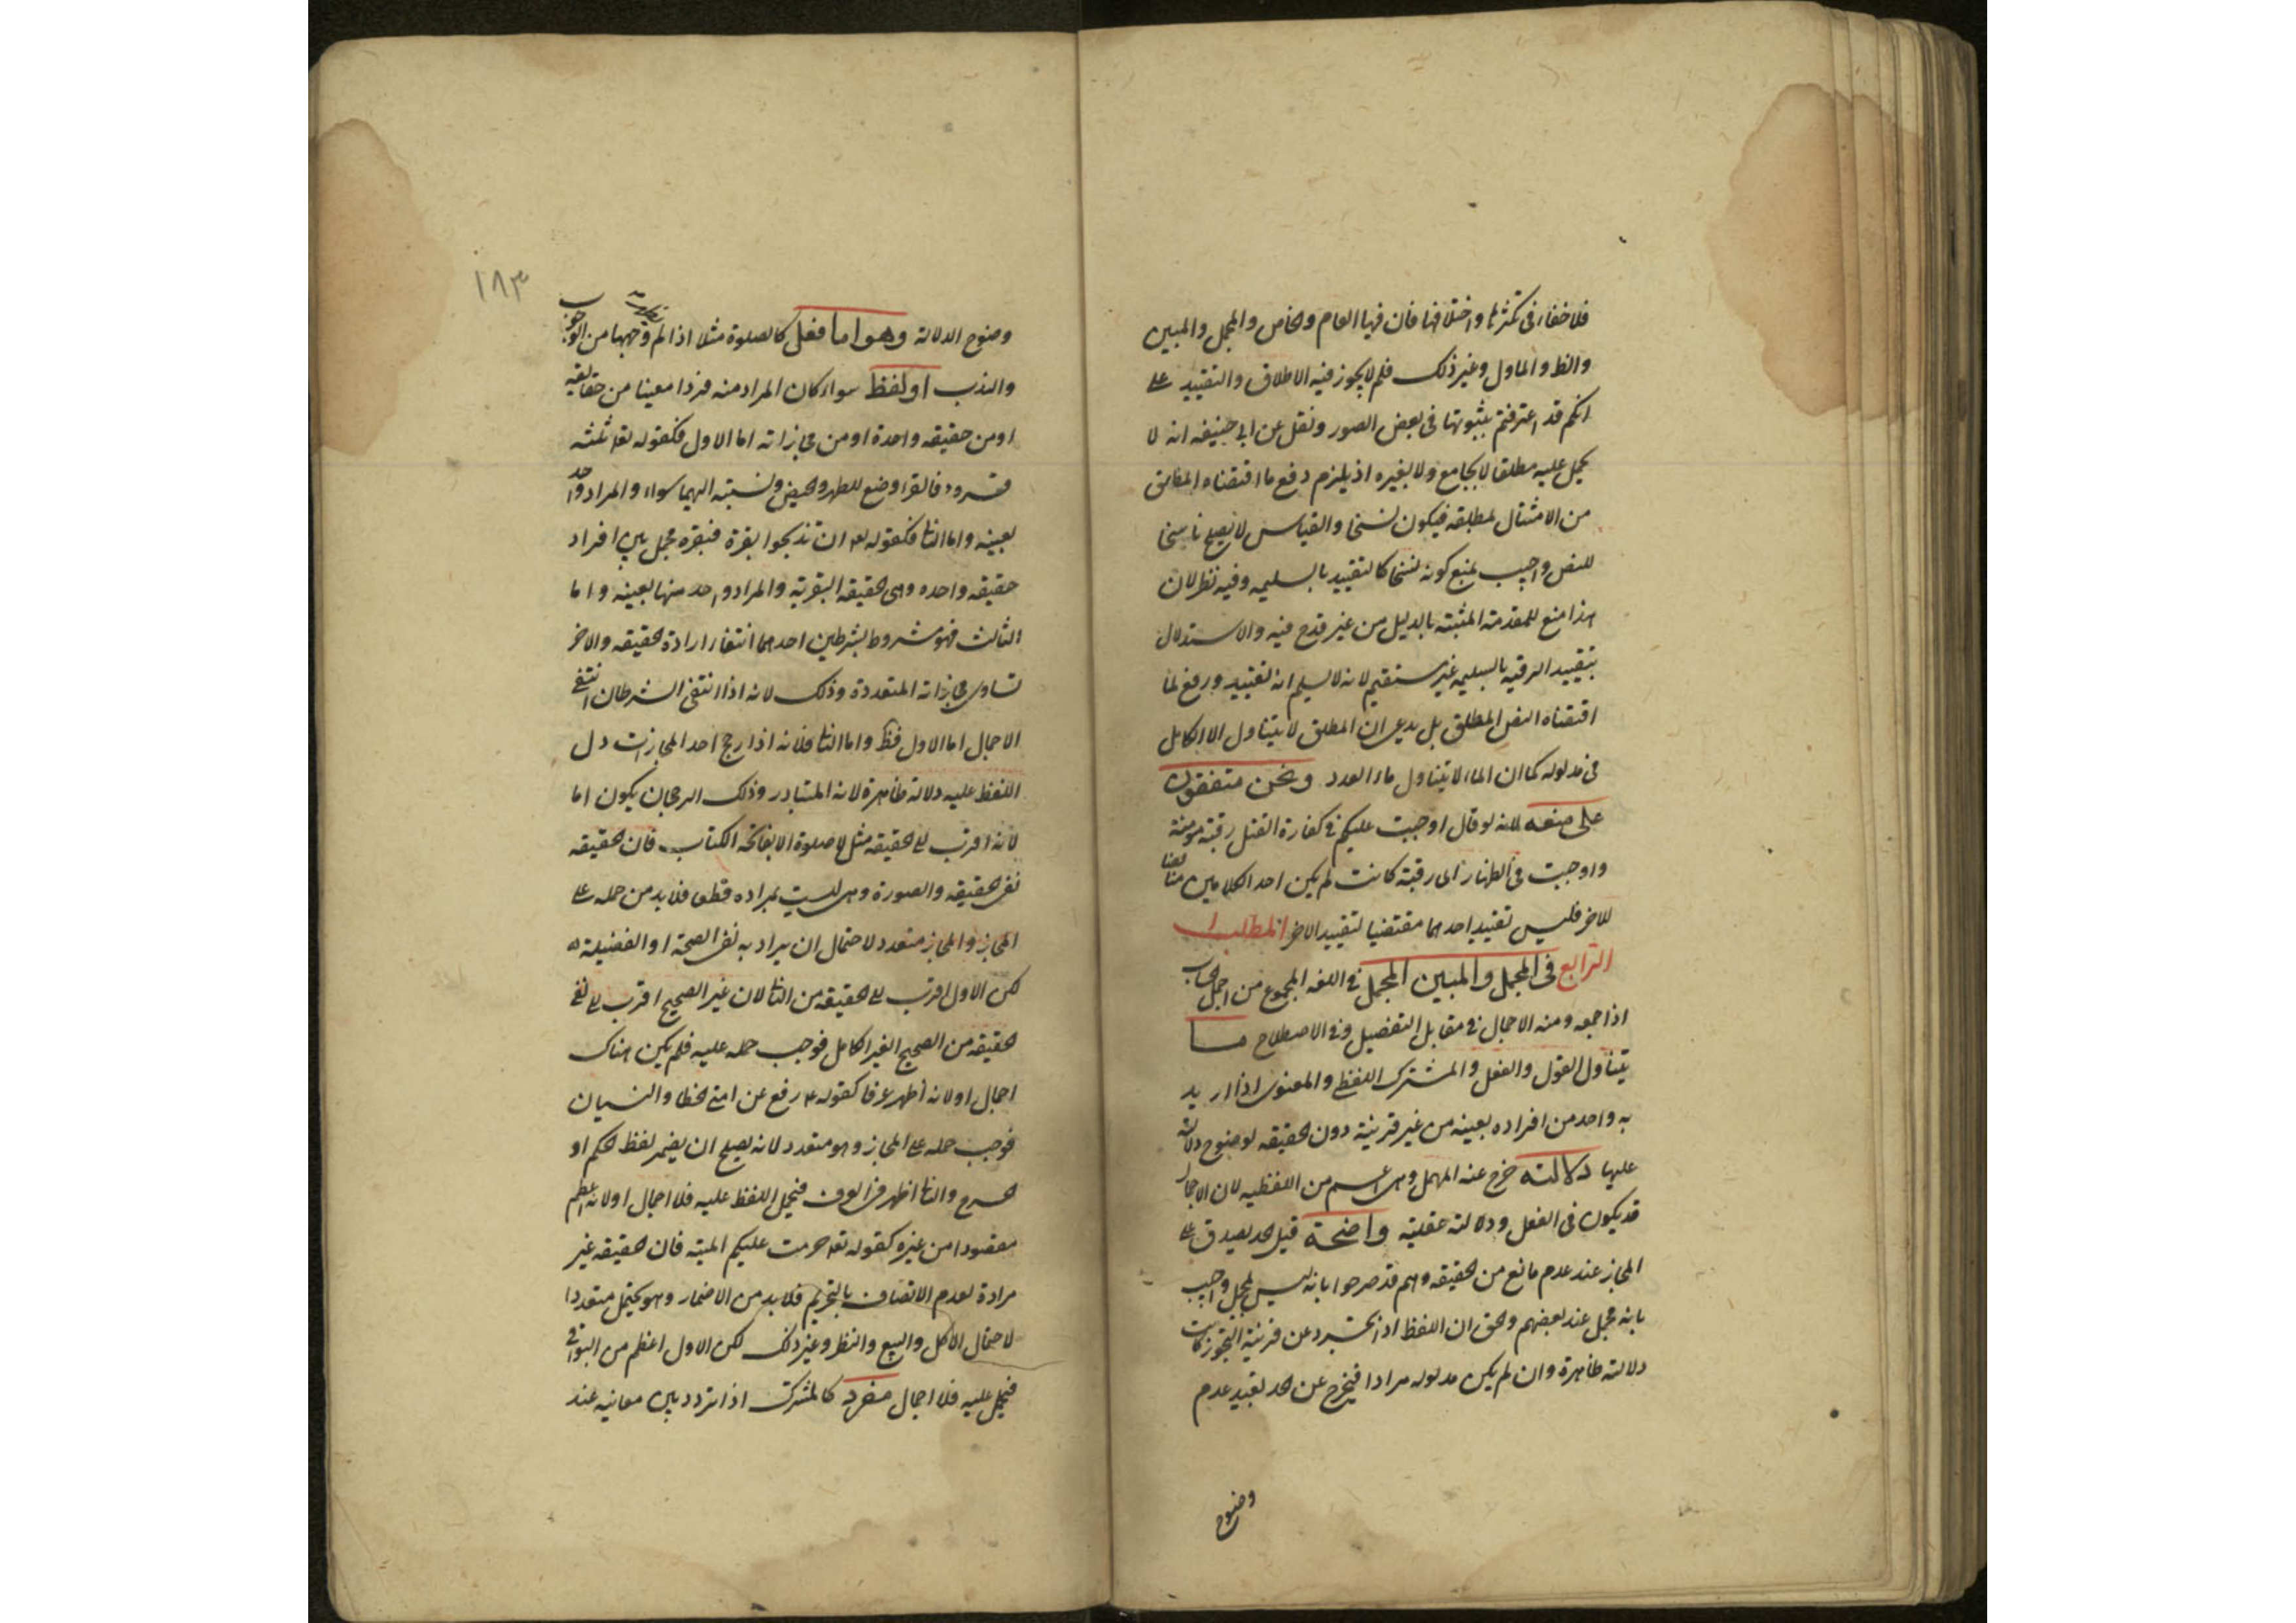 فلا خفاء فى كثرتها واختلافها فان فيها العام والخاص والمجمل والمبين
والظ والماول وغير ذلك فلم لا يجوز فيه الاطلاق والتقييد على
انكم قد اعترفتم بثبوتها فى بعض الصور ونقل عن ابى حنيفه انه لا
يحمل عليه مطلقا لا بجامع ولا بغيره اذ يلزم دفع ما اقتضاه المطلق
من الامتثال لمطلقه فيكون نسخا والقياس لا يصلح ناسخا
للنص واجيب بمنع كونه نسخا كالتقييد بالسليمه وفيه نظر لان
هذا منع للمقدمة المثبتة بالدليل من غير قدح فيه والاستدلال
بتقييد الرقبه بالسليمه غير مستقيم لانه لا يسلم انه تقييد ورفع لما
اقتضاه النص المطلق بل يدعى ان المطلق لا يتناول الا الكامل
فى مدلوله كما ان الماء لا يتناول ماء الورد ونحن متفقون
على منعه لانه لو قال اوجبت عليكم فى كفارة القتل رقبة مومنة
واوجبت فى الظهار اى رقبة كانت لم يكن احد الكلامين مناقضا
للاخر فليس تقييد احدهما مقتضيا لتقييد الاخر المطلب
الرابع فى المجمل والمبين المجمل فى اللغه المجموع من اجمل الحساب
اذا جمعه ومنه الاجمال فى مقابل التفصيل وفى الاصطلاح ما
يتناول القول والفعل والمشترك اللفظى والمعنوى اذا اريد
به واحد من افراده بعينه من غير قرينة دون الحقيقه لوضوح دلالته
عليها دلالته خرج عنه المهمل وهى اعم من اللفظيه لان الاجمال
قد يكون فى الفعل ودلالته عقليه واضحة قيل الحد يصدق على
المجاز عند عدم مانع من الحقيقه وهم قد صرحوا بانه ليس بمجمل واجيب
بانه مجمل عند بعضهم والحق ان اللفظ اذا تجرد عن قرينة التجوز كانت
دلالته ظاهرة وان لم يكن مدلوله مرادا فيخرج عن الحد بقيد عدم
وضوح
١٨٣
وضوح الدلالة وهو اما فعل كالصلوة مثلا اذا لم وجهها من الوجوب
والندب او لفظ سواء كان المراد منه فردا معينا من حقايقه
او من حقيقه واحدة او من مجازاته اما الاول فكقوله تعا ثلثه
قروء فالقرا وضع للطهر والحيض ونسبته اليهما سواء والمراد واحد
بعينه واما الثا فكقوله تعا ان تذبحوا بقرة فبقرة مجمل بين افراد
حقيقه واحده وهى الحقيقه البقرية والمراد واحد منها بعينه واما
الثالث فهو مشروط بشرطين احدهما انتفاء ارادة الحقيقه والاخر
تساوى مجازاته المتعددة وذلك لانه اذا انتفى الشرطان انتفى
الاجمال اما الاول فظ واما الثا فلانه اذا رجح احد المجازات دل
اللفظ عليه دلالة ظاهرة لانه المتبادر وذلك الرجحان يكون اما
لانه اقرب الى الحقيقه مثل لا صلوة الا بفاتحة الكتاب فان الحقيقه
نفى الحقيقه والصورة وهى ليست بمراده قطعا فلا بد من حمله على
المجاز والمجاز متعدد لاحتمال ان يراد به نفى الصحة او الفضيلة
لكن الاول اقرب الى الحقيقه من الثا لان غير الصحيح اقرب الى نفى
الحقيقه من الصحيح الغير الكامل فوجب حمله عليه فلم يكن هناك
اجمال او لانه اظهر عرفا كقوله ع رفع عن امتى الخطا والنسيان
فوجب حمله على المجاز وهو متعدد لانه يصلح ان يضمر لفظ الحكم او
الحرج والثا اظهر فى العرف فيحمل اللفظ عليه فلا اجمال او لانه اعظم
مقصودا من غيره كقوله تعا حرمت عليكم الميته فان الحقيقه غير
مرادة لعدم الاتصاف بالتحريم فلا بد من الاضمار وهو يحتمل متعددا
لاحتمال الاكل والبيع والنظر وغير ذلك لكن الاول اعظم من البواقى
فيحمل عليه فلا اجمال مفرد كالمشترك اذا تردد بين معانيه عند